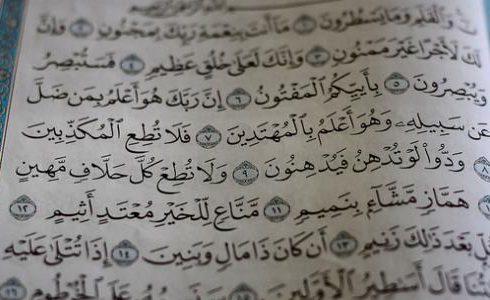 نٓ وَٱلْقَلَمِ وَمَا يَسْطُرُونَ ١ مَآ أَنتَ بِنِعْمَةِ رَبِّكَ بِمَجْنُونٍ ٢ وَإِنَّ
لَكَ لَأَجْرًا غَيْرَ مَمْنُونٍ ٣ وَإِنَّكَ لَعَلَىٰ خُلُقٍ عَظِيمٍ ٤ فَسَتُبْصِرُ
وَيُبْصِرُونَ ٥ بِأَييِّكُمُ ٱلْمَفْتُونُ ٦ إِنَّ رَبَّكَ هُوَ أَعْلَمُ بِمَن ضَلَّ
عَن سَبِيلِهِۦ وَهُوَ أَعْلَمُ بِٱلْمُهْتَدِينَ ٧ فَلَا تُطِعِ ٱلْمُكَذِّبِينَ
٨ وَدُّوا۟ لَوْ تُدْهِنُ فَيُدْهِنُونَ ٩ وَلَا تُطِعْ كُلَّ حَلَّافٍ مَّهِينٍ
هَمَّازٍ مَّشَّآءٍۭ بِنَمِيمٍ ١١ مَّنَّاعٍ لِّلْخَيْرِ مُعْتَدٍ أَثِيمٍ ١٢
بَعْدَ ذَٰلِكَ زَنِيمٍ ١٣ أَن كَانَ ذَا مَالٍ وَبَنِينَ ١٤ إِذَا تُتْلَىٰ عَلَيْهِ
قَالَ أَسَٰطِيرُ ٱلْأَوَّلِينَ
عَلَى ٱلْخُرْطُومِ ١٦